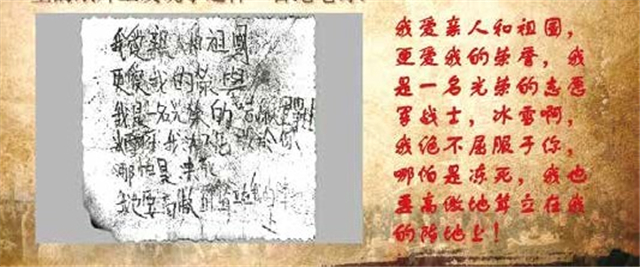 我愛親人和祖國
更愛我的榮譽
我是一名光荣的志愿軍战士
冰雪啊我决不屈服於你
哪怕是凍死
我也要高傲的
我爱亲人和祖国,
更爱我的荣誉,我
是一名光荣的志愿
军战士,冰雪啊,
我绝不屈服于你,
哪怕是冻死,我也
要高傲地耸立在我
的阵地上!